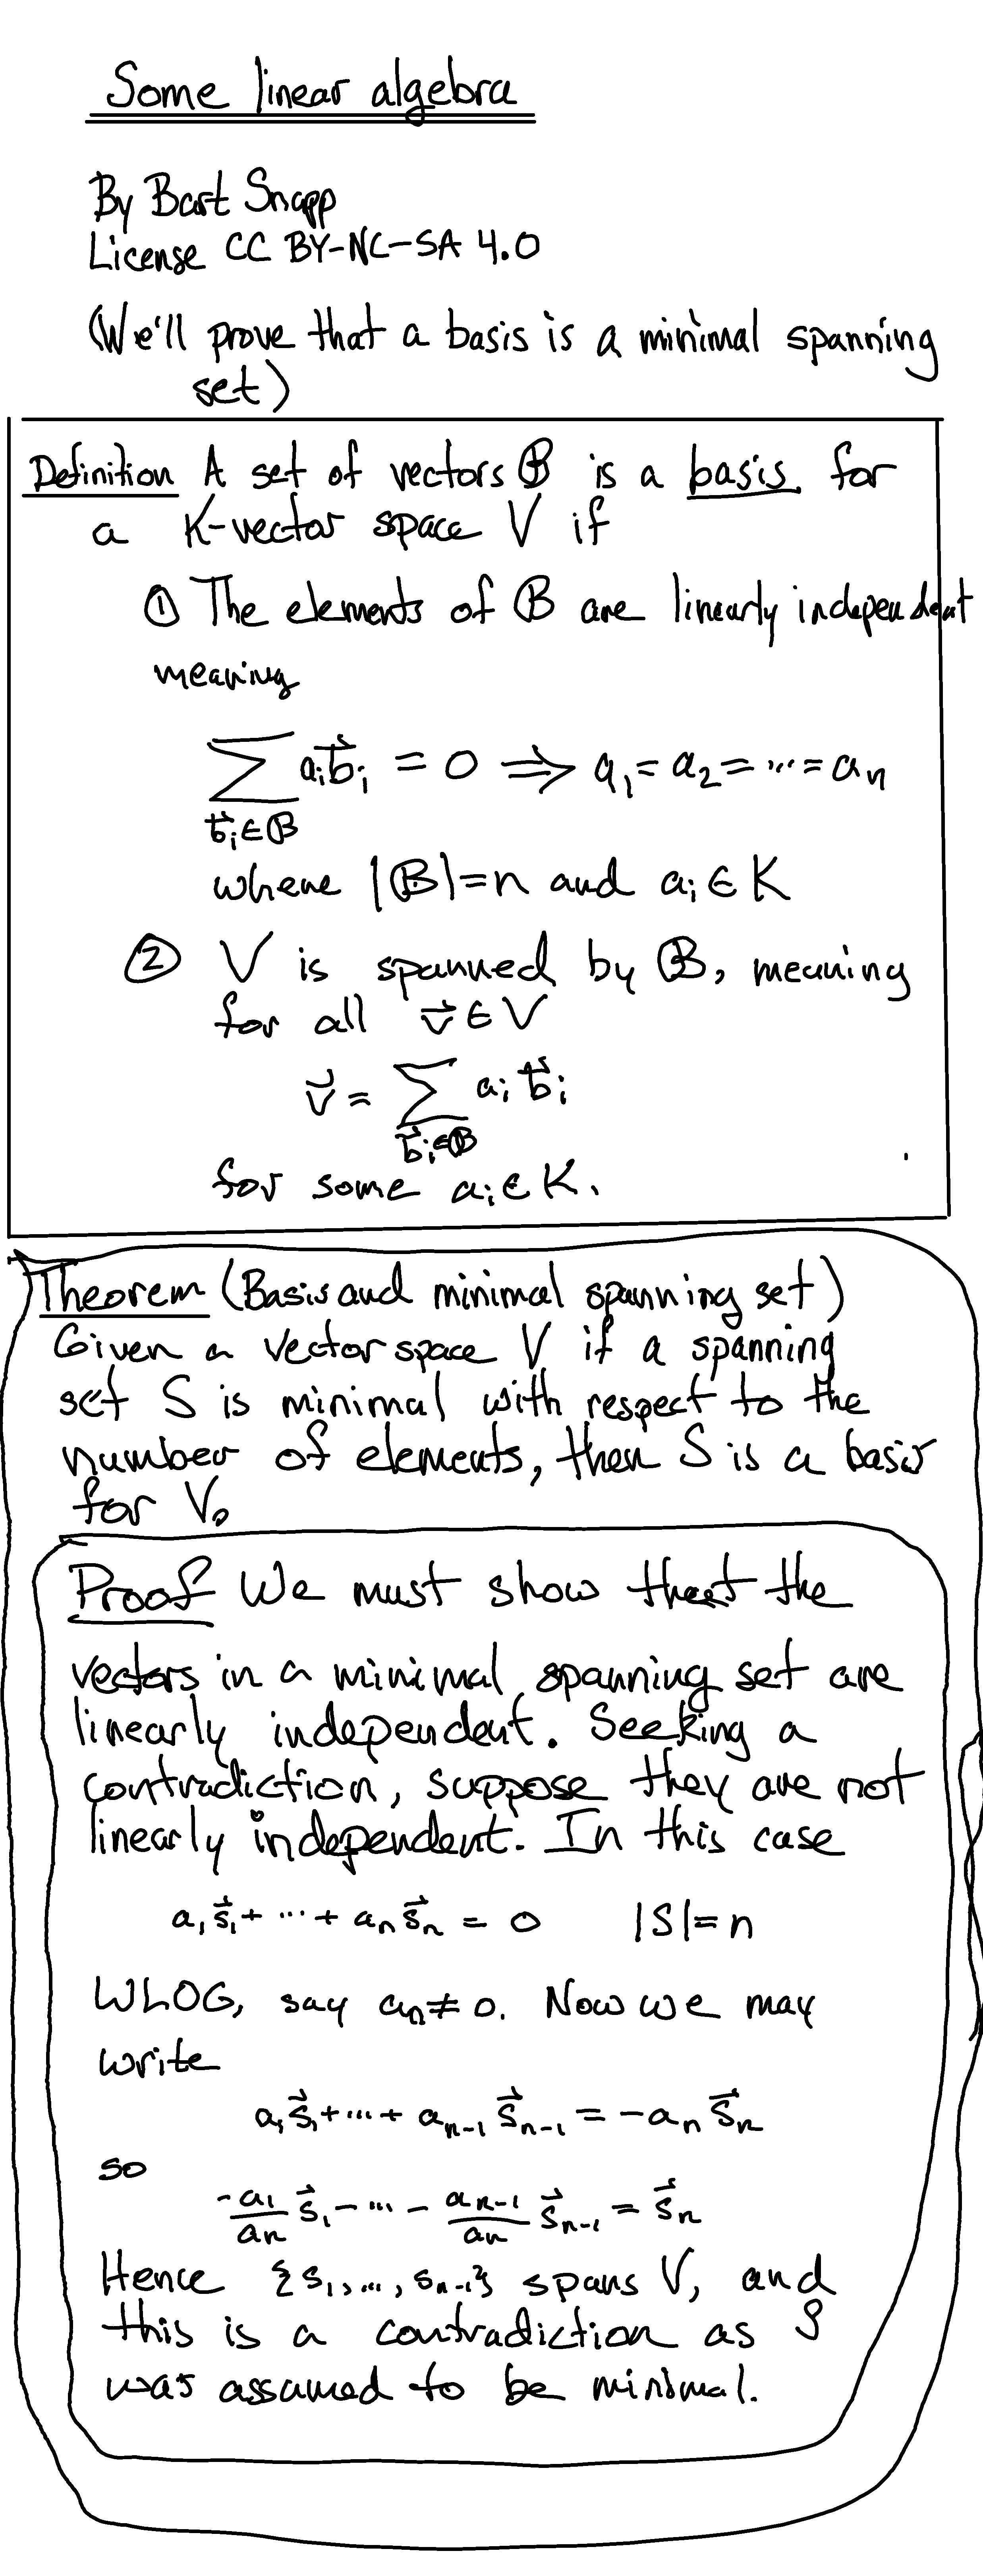 Some linear algebra
By Bart Snapp
License CC BY-NC-SA 4.0
(We'll prove that a basis is a minimal spanning
set)
Definition A set of vectors 𝔅 is a basis for
a K-vector space V if
① The elements of 𝔅 are linearly independent
meaning
∑ aᵢb⃗ᵢ = 0 ⇒ a₁ = a₂ = ... = aₙ
b⃗ᵢ∈𝔅
where |𝔅|=n and aᵢ ∈ K
② V is spanned by 𝔅, meaning
for all v⃗ ∈ V
v⃗ = ∑ aᵢ b⃗ᵢ
b⃗ᵢ∈𝔅
for some aᵢ ∈ K.
Theorem (Basis and minimal spanning set)
Given a vector space V if a spanning
set S is minimal with respect to the
number of elements, then S is a basis
for V.
Proof We must show that the
vectors in a minimal spanning set are
linearly independent. Seeking a
contradiction, suppose they are not
linearly independent. In this case
a₁s⃗₁ + ... + aₙs⃗ₙ = 0 |S|= n
WLOG, say aₙ ≠ 0. Now we may
write
a₁s⃗₁ + ... + aₙ₋₁ s⃗ₙ₋₁ = -aₙ s⃗ₙ
so
-a₁/aₙ s⃗₁ - ... - aₙ₋₁/aₙ s⃗ₙ₋₁ = s⃗ₙ
Hence {s₁, ..., sₙ₋₁} spans V, and
this is a contradiction as S
was assumed to be minimal.